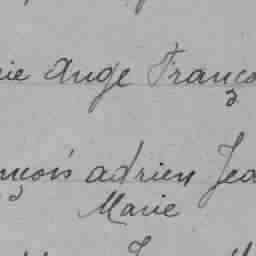 ie Ange Franço
nçois adrien Jea
Marie